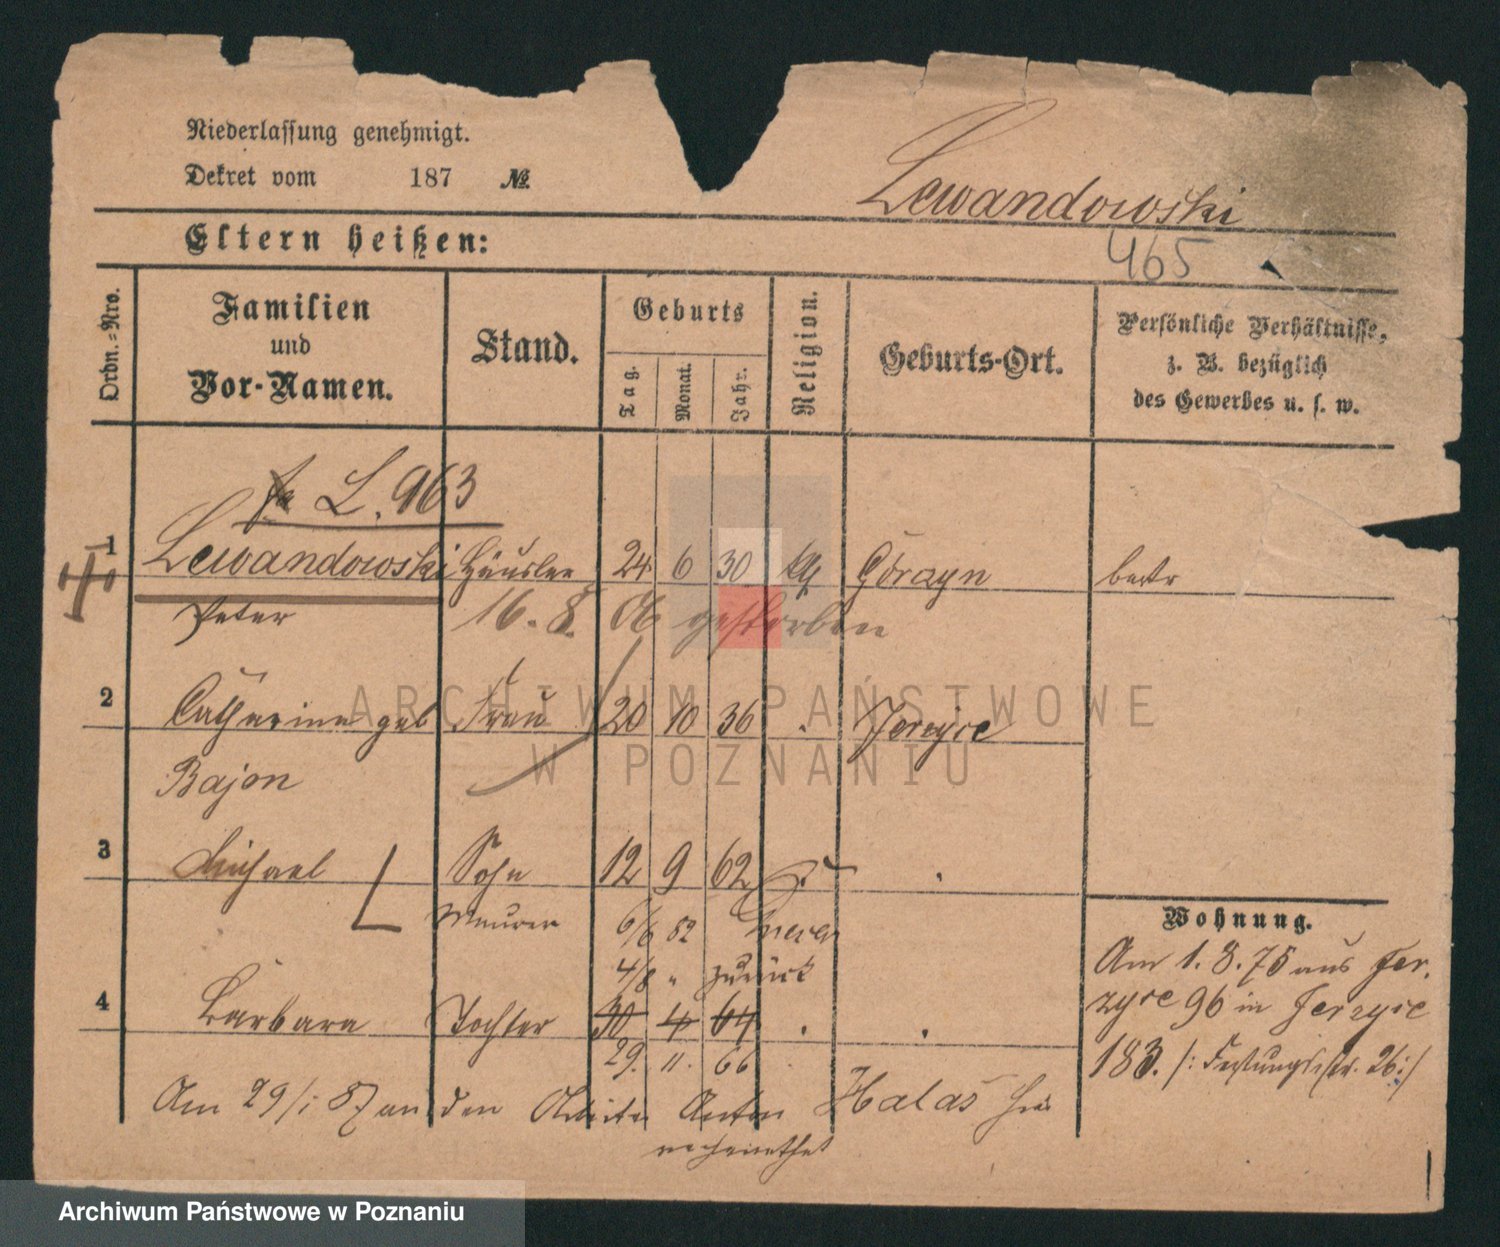 Niederlassung genehmigt.
Dekret vom 187 №
Lewandowski
465
Eltern heißen:
Ordn.-Nro.
Familien und Vor-Namen.
Stand.
Geburts
Tag. Monat. Jahr.
Religion.
Geburts-Ort.
Persönliche Verhältnisse, z. B. bezüglich des Gewerbes u. s. w.
L. 963
1 Lewandowski Häusler 24 6 30 kath Górczyn
Peter 16. 8. 06 gestorben
2 Catharina geb Frau 20 10 36 . Jerzyce
Bajon
3 Michael Sohn 12 9 62 .
Maurer 6/6 82
4/8 " zurück
4 Barbara Tochter 30 4 64 . .
29. 11. 66
Am 29/1 87 an den Arbeiter Anton Halas hier
verheirathet
Wohnung.
Am 1. 8. 75 aus Jer-
zyce 96 in Jerzyce
183. /: Festungsstr. 26 :/
ARCHIWUM PAŃSTWOWE
W POZNANIU
Archiwum Państwowe w Poznaniu